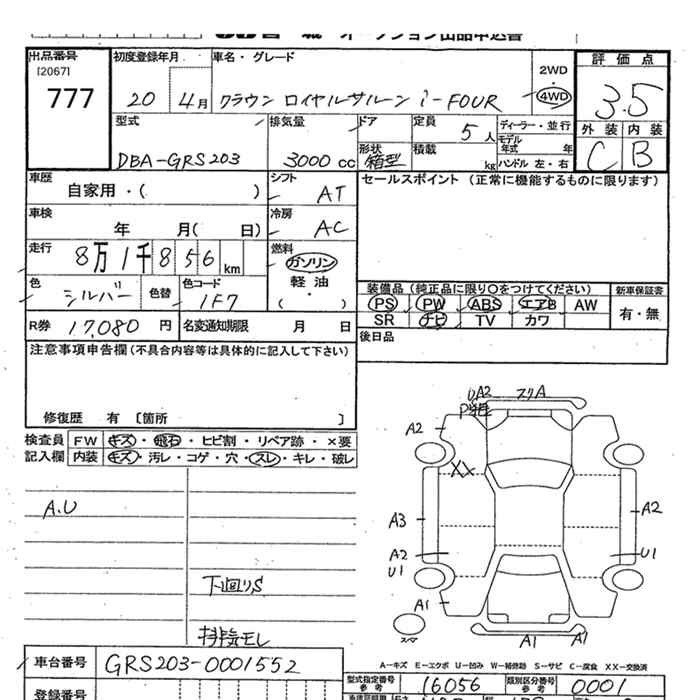 オークション出品申込書
出品番号 初度登録年月 車名・グレード 2WD 評価点
[2067]
777 20 4月 クラウン ロイヤルサルーン i-FOUR 4WD 3.5
型式 排気量 ドア 定員 5人 ディーラー・並行 外装 内装
モデル年式 年
DBA-GRS203 3000cc 形状 箱型 積載 kg ハンドル 左・右 C B
車歴 自家用・( ) シフト AT セールスポイント (正常に機能するものに限ります)
車検 年 月( 日) 冷房 AC
走行 8万1千856km 燃料 ガソリン
軽油
・( )
色 シルバー 色替 色コード 1F7
装備品 (純正品に限り○をつけてください) 新車保証書
PS PW ABS エアB AW 有・無
SR ナビ TV カワ
R券 17,080円 名変通知期限 月 日
後日品
注意事項申告欄(不具合内容等は具体的に記入して下さい)
修復歴 有 〔箇所 〕
検査員 FW キズ・飛石・ヒビ割・リペア跡・×要
記入欄 内装 キズ・汚レ・コゲ・穴・スレ・キレ・破レ
A.U
下回りS
排気モレ
UA2 スリA
A2
XX
A3 A2
A2 U1
U1
A1
スマ A1 A1
A-キズ E-エクボ U-凹み W-補修跡 S-サビ C-腐食 XX-交換済
車台番号 GRS203-0001552
型式指定番号 参考 16056 類別区分番号 参考 0001
登録番号